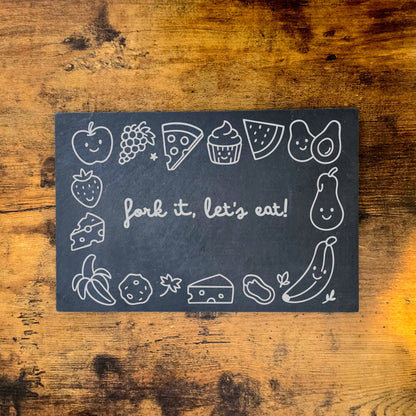 fork it, let's eat!